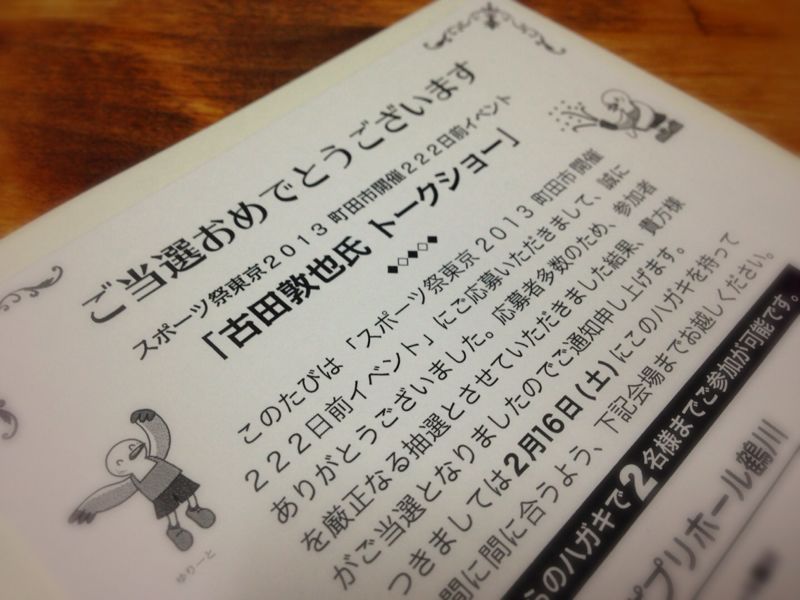 ご当選おめでとうございます
スポーツ祭東京2013 町田市開催222日前イベント
「古田敦也氏 トークショー」
このたびは「スポーツ祭東京2013 町田市開催
222日前イベント」にご応募いただきまして、誠に
ありがとうございました。応募者多数のため、参加者
を厳正なる抽選とさせていただきました結果、貴方様
がご当選となりましたのでご通知申し上げます。
つきましては2月16日(土)にこのハガキを持って
間に間に合うよう、下記会場までお越しください。
らのハガキで2名様までご参加が可能です。
プリホール鶴川
ゆりーと